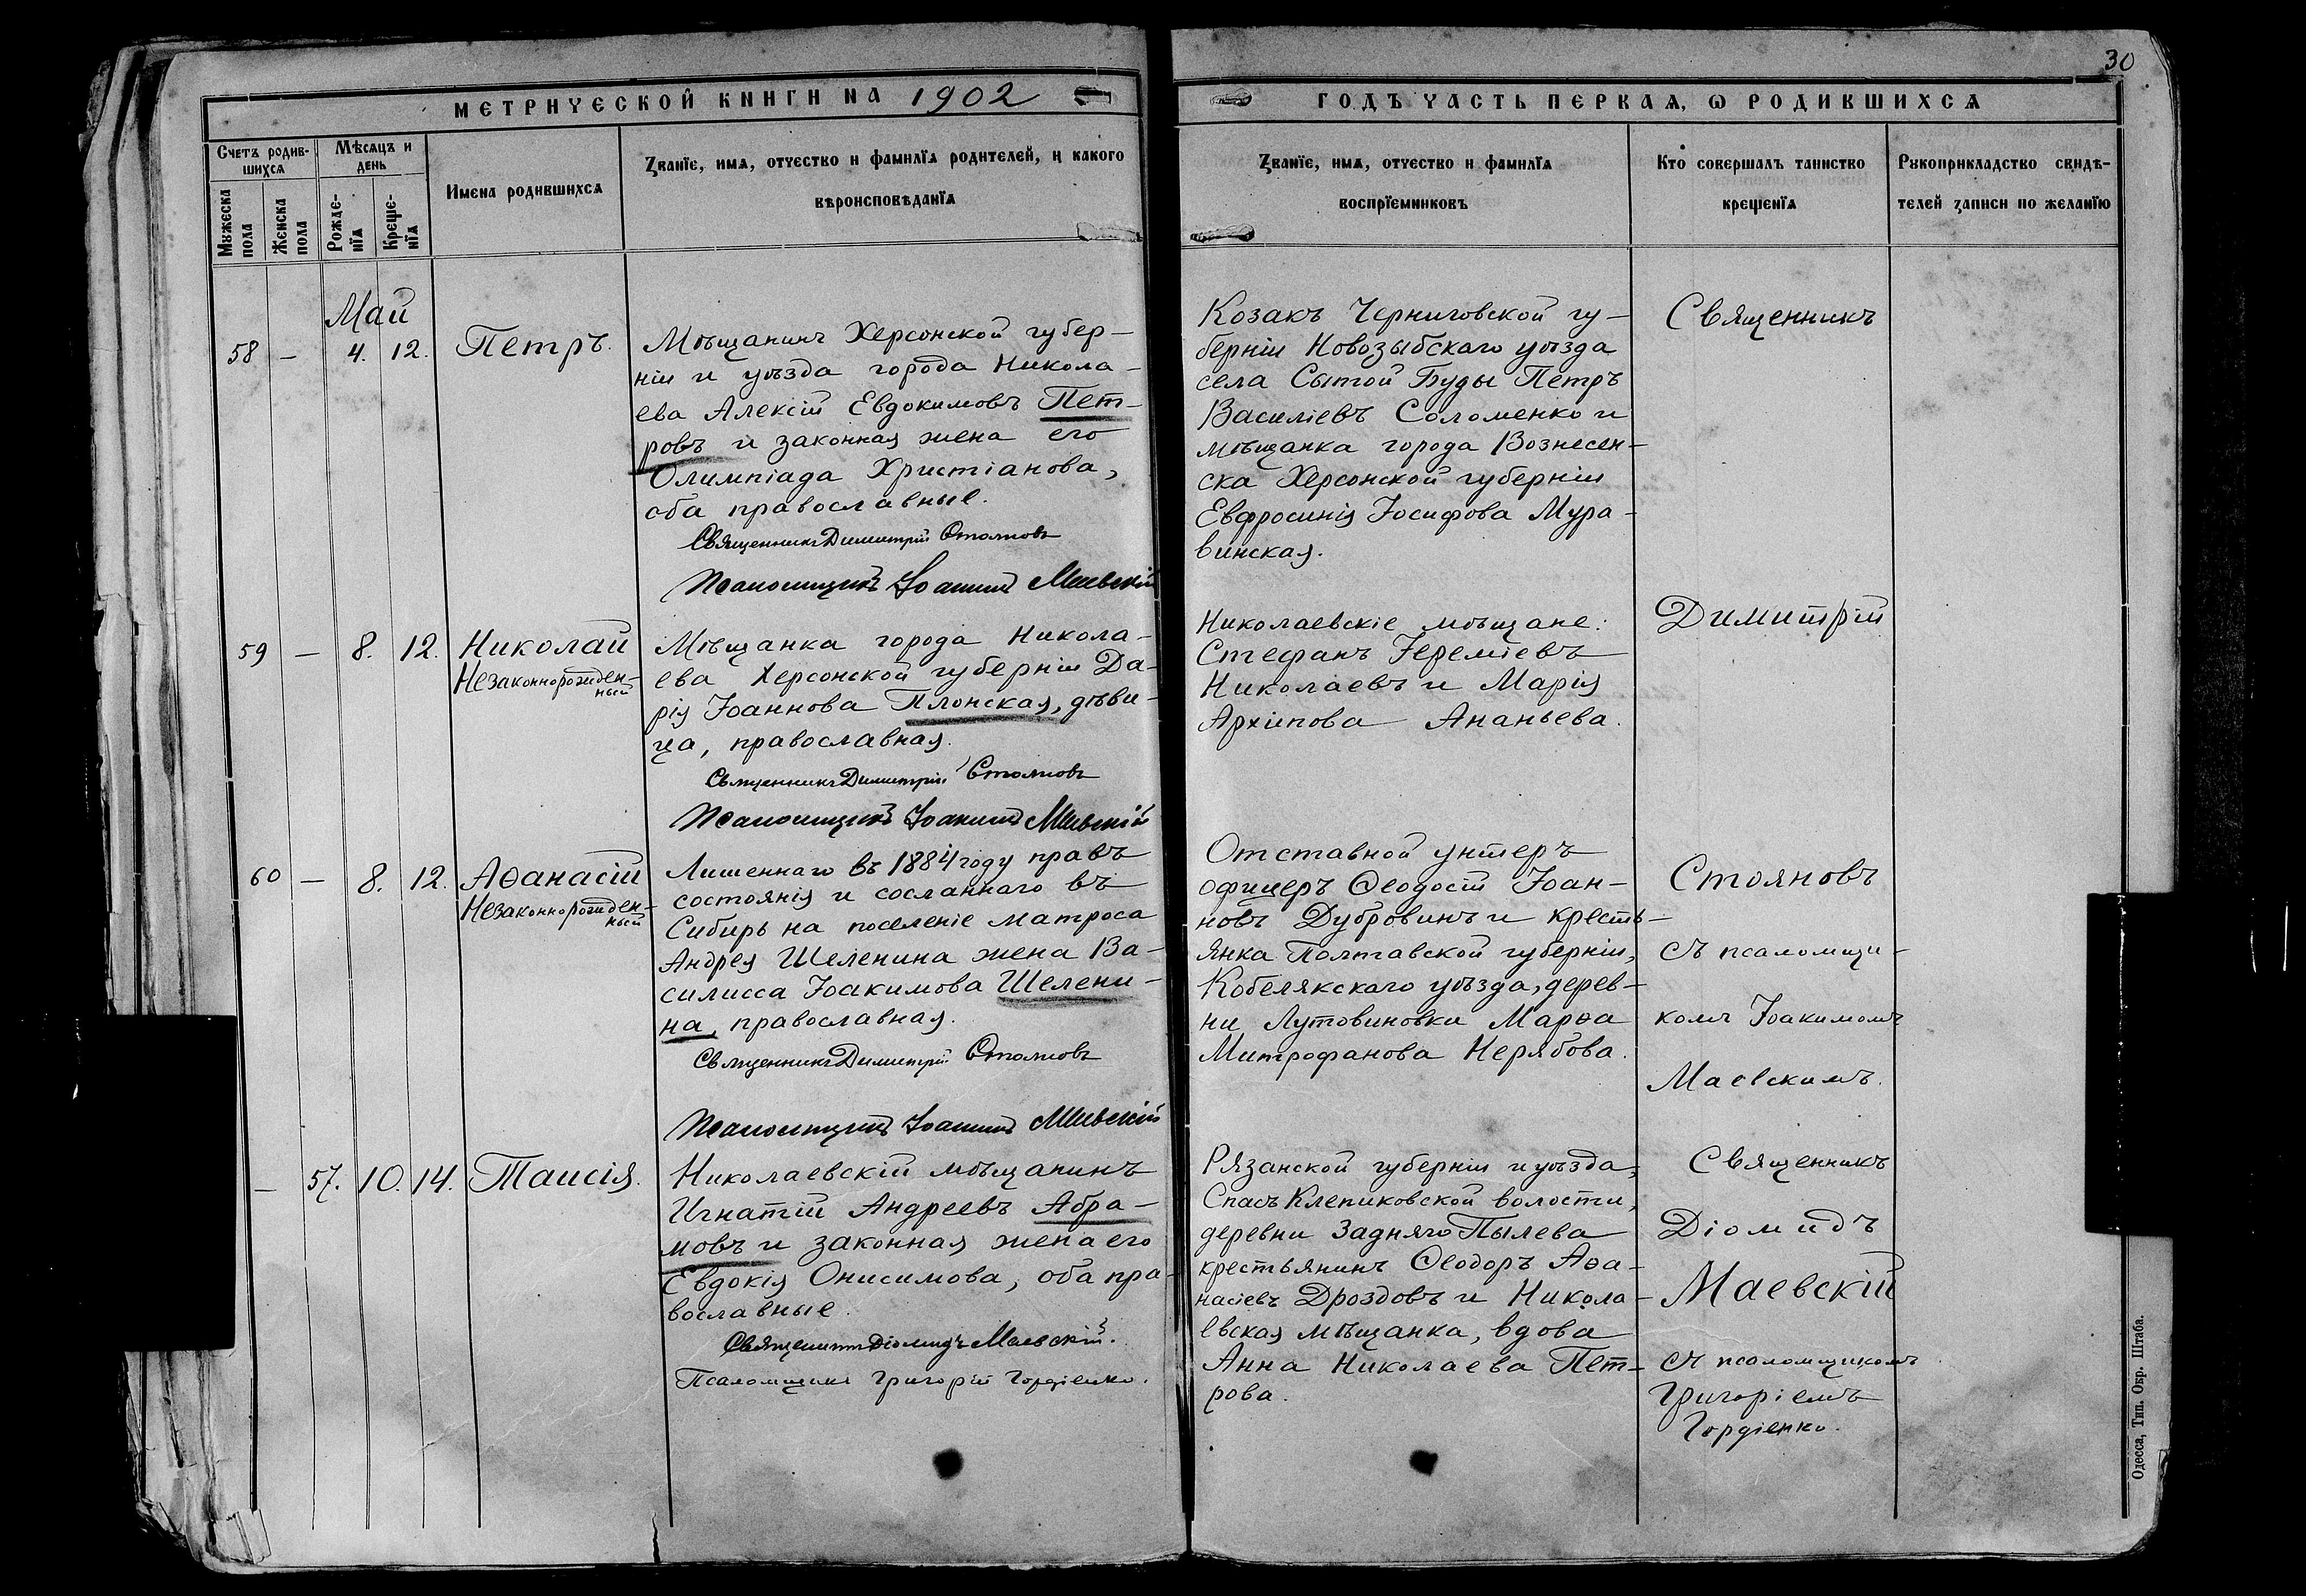 30
МЕТРИЧЕСКОЙ КНИГИ НА 1902
ГОДЪ ЧАСТЬ ПЕРВАЯ, Ѡ РОДИВШИХСѦ
Счетъ родив-
шихсѧ
Мѣсѧцъ и
день
Мꙋжеска
пола
Женска
пола
Рожде-
нїѧ
Креще-
нїѧ
Имена родившихсѧ
Званїе, имѧ, отчество и фамилїѧ родителей, и какого
вѣроисповѣданїѧ
Званїе, имѧ, отчество и фамилїѧ
воспрїемниковъ
Кто совершалъ таинство
крещенїѧ
Рꙋкоприкладство свидѣ-
телей записи по желанїю
Май
58 — 4. 12. Петръ.
Мѣщанинъ Херсонской губер-
ніи и уѣзда города Никола-
ева Алексій Евдокимовъ Пет-
ровъ и законная жена его
Олимпіада Христіанова,
оба православные.
Священникъ Димитрій Стояновъ
Псаломщикъ Іоакимъ Маевскій
Козакъ Черниговской гу-
берніи Новозыбскаго уѣзда
села Сытой Буды Петръ
Василіевъ Соломенко и
мѣщанка города Вознесен-
ска Херсонской губерніи
Евфросинія Іосифова Мура-
винская.
Священникъ
59 — 8. 12. Николай
Незаконнорожден-
ный
Мѣщанка города Никола-
ева Херсонской губерніи Да-
рія Іоаннова Плонская, дѣви-
ца, православная.
Священникъ Димитрій Стояновъ
Псаломщикъ Іоакимъ Маевскій
Николаевскіе мѣщане:
Стефанъ Іереміевъ
Николаевъ и Марія
Архипова Ананьева.
Димитрій
60 — 8. 12. Аѳанасій
Незаконнорожден-
ный
Лишеннаго въ 1884 году правъ
состоянія и сосланнаго въ
Сибирь на поселеніе матроса
Андрея Шеленина жена Ва-
силисса Іоакимова Шелени-
на, православная.
Священникъ Димитрій Стояновъ
Псаломщикъ Іоакимъ Маевскій
Отставной унтеръ
офицеръ Ѳеодосій Іоан-
новъ Дубровинъ и кресть-
янка Полтавской губерніи,
Кобелякскаго уѣзда, дерев-
ни Лутовиновки Марѳа
Митрофанова Нерябова.
Стояновъ
съ псаломщи-
комъ Іоакимомъ
Маевскимъ.
— 57. 10. 14. Таисія.
Николаевскій мѣщанинъ
Игнатій Андреевъ Абра-
мовъ и законная жена его
Евдокія Онисимова, оба пра-
вославные.
Священникъ Діомидъ Маевскій.
Псаломщикъ Григорій Гордіенко.
Рязанской губерніи и уѣзда,
Спасъ Клепиковской волости,
деревни Задняго Пылева
крестьянинъ Ѳеодоръ Аѳа-
насіевъ Дроздовъ и Никола-
евская мѣщанка, вдова
Анна Николаева Пет-
рова.
Священникъ
Діомидъ
Маевскій
съ псаломщикомъ
Григоріемъ
Гордіенко.
Одесса, Тип. Окр. Штаба.